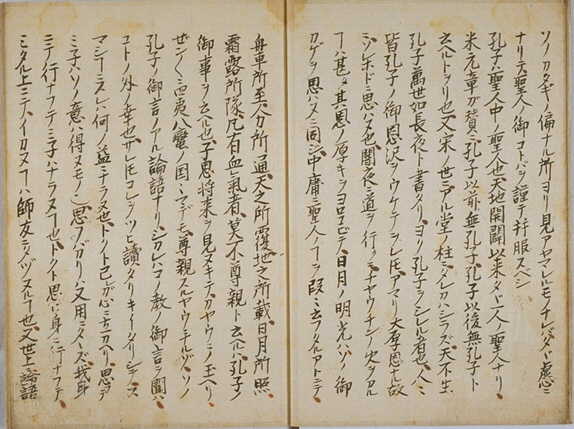 ソノカタギノ偏ナル所ヨリ見アヤマレルモノナレバ
ナリ天聖人ノ御コトバヲ謹テ并服スベシ
孔子ハ聖人中ノ聖人也天地開闢以来タヾ一人ノ聖人ナリ
米元章ガ賛ニ孔子以前無孔子孔子以後無孔子ト
云ヘルトヲリ也又宋ノ世ニアル堂ノ柱ニタレカハシラズ天不生
孔子萬世如長夜ト書タリヨク孔子ヲシレル者也人ミ
皆孔子ノ御恩沢ヲウケテヲレ𪜈アマリ大厚恩ユル故
ミソレホドニ思ハヌ也闇夜ニ道ヲ行ク
フハ甚ダ其恩ノ厚キヲヨロコビテ日月ノ明光ハソノ御
カゲヲ思ハヌニ同ジ中庸ニ聖人ノフヲ段ミ云フタルアトニテ
舟車所至人力所通天之所覆地之所載日月所照
霜露所隊凡有血氣者莫不尊親ト云ルハ孔子ノ
御事ヲ云ヘル也子思将来ヲ見ヌキテカヤウニノ玉ヘリ
ゼンゼンニ四夷八蛮ノ国ミマデモ尊親スルヤウニナルゾソノ
孔子ノ御言ノアル論語ナリシカレバコノ教ノ御言ヲ聞ハ
コトノ外ノ幸也サレ𪜈コレヲツヒ讀タリキイタリシテス
マシテスレハ何ノ益ニモナラヌ也トクト己ガ心ニ
ミ子ハソノ意ハ得ヌモノ也思フバカリハ又用ニタヽズ我身
ニテ行ナフテミ子ハナラヌフ也トクト思ヒ身ニ行ナフテ
ミタル上ニテイカヌフハ師友ニタヅヌル也又世上論語